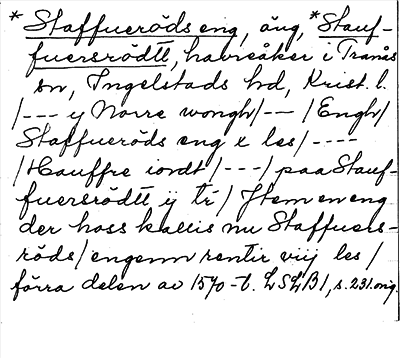 * Staffueröds eng, äng, *Stauf-
fuersrödtt, havreåker i Tranås
sn, Ingelstads hd, Krist. l.
/--- y Norre wongh/-- /Engh/
Staffueröds eng x les/----
/Hauffre iordt/---/paa Stauf-
fuersrödtt ij tr/ Jtem en eng
der hoss kallis nu Staffuers-
röds/engenn rentir viij les/
förra delen av 1570-t. LSLB 1, s. 231. orig.